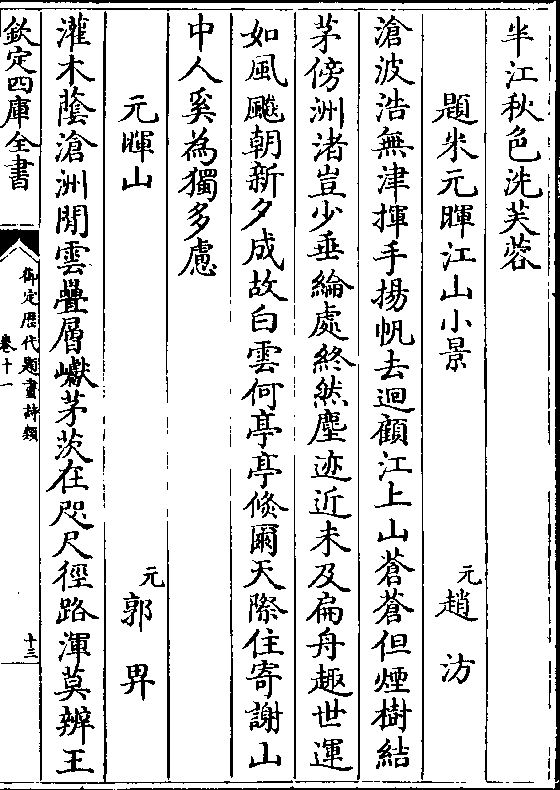 半江秋色洗芙蓉
題米元暉江山小景 元趙汸
滄波浩無津揮手揚帆去迴顧江上山蒼蒼但煙樹結
茅傍洲渚豈少垂綸處終然塵迹近未及扁舟趣世運
如風飈朝新夕成故白雲何亭亭倐爾天際住寄謝山
中人奚為獨多慮
元暉山 元郭畀
灌木蔭滄洲閒雲疊層巘茅茨在咫尺徑路渾莫辨王
欽定四庫全書
御定歷代題畫詩類
卷十一
十三